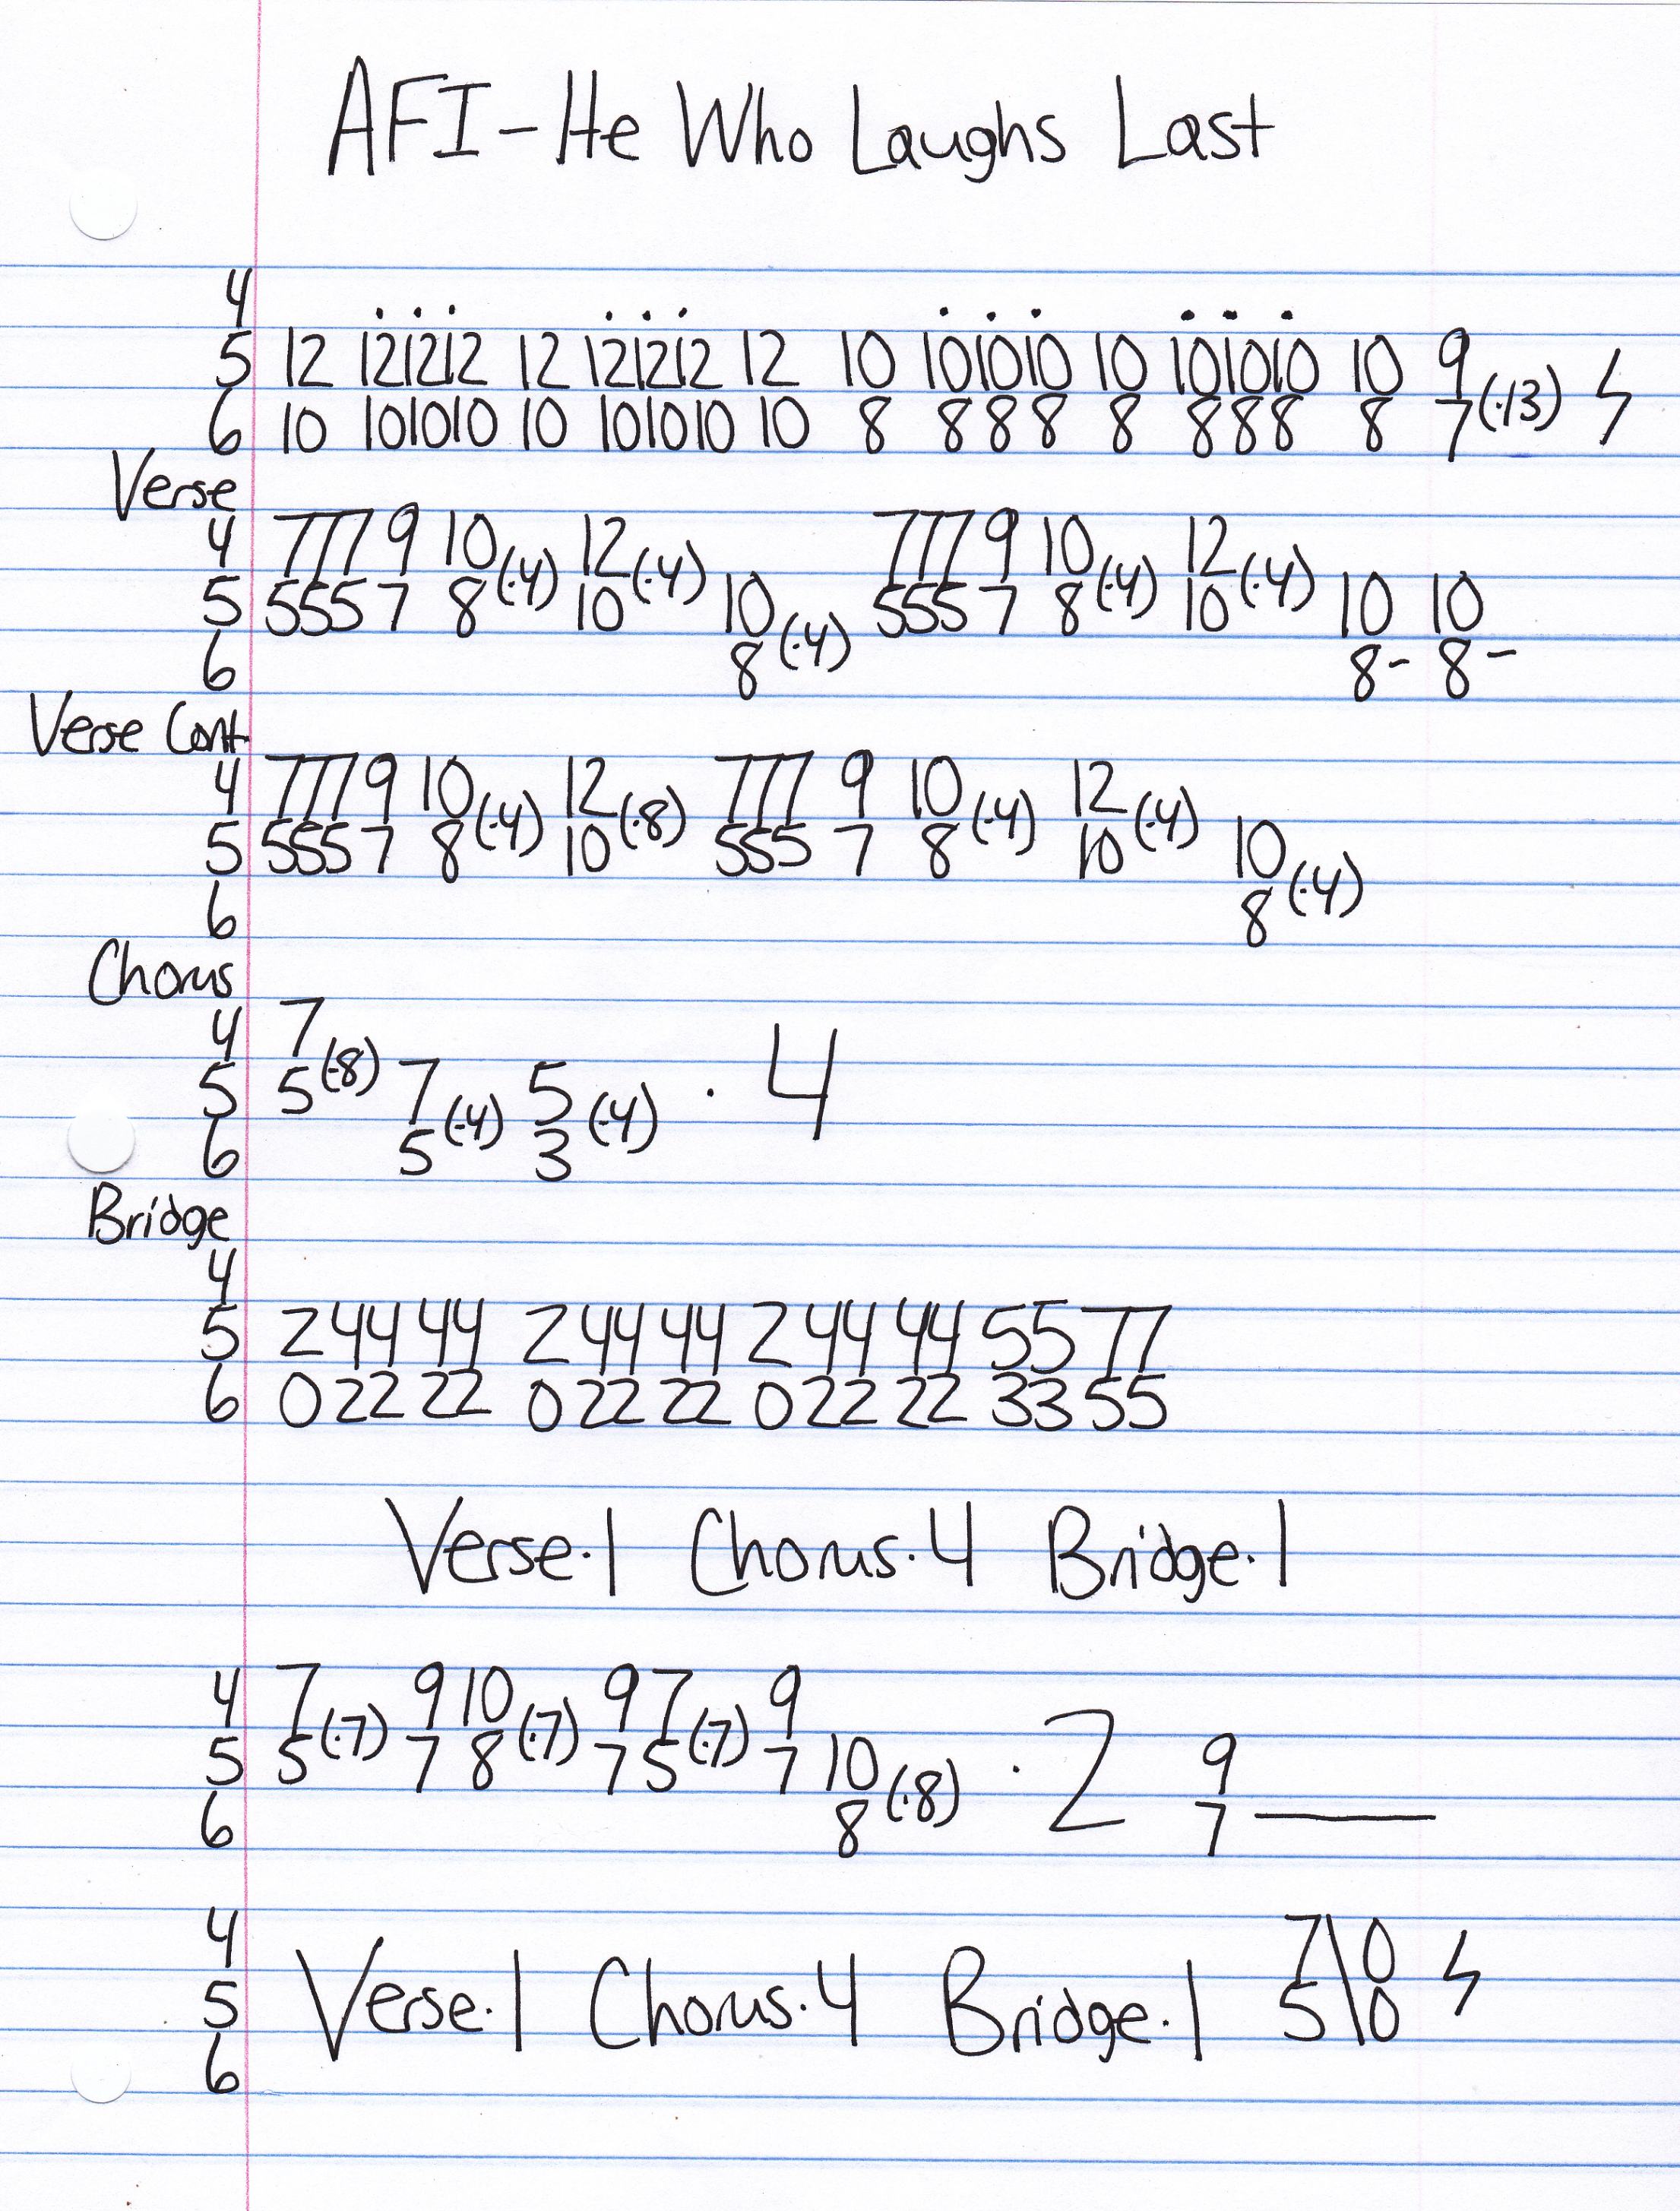 AFI - He Who Laughs Last
4
. . . . . . . . . . . .
5 12 121212 12 121212 12 10 101010 10 101010 10 9
6 10 101010 10 101010 10 8 888 8 888 8 7 (·13) ϟ
Verse
4 777 9 10 (·4) 12 (·4) 777 9 10 (·4) 12 (·4)
5 555 7 8 10 10 555 7 8 10 10 10
6 8 (·4) 8- 8-
Verse Cont.
4 777 9 10 (·4) 12 (·8) 777 9 10 (·4) 12 (·4)
5 555 7 8 10 555 7 8 10 10
6 8 (·4)
Chorus
4 7
5 5 (·8) 7 5 · 4
6 5 (·4) 3 (·4)
Bridge
4
5 2 44 44 2 44 44 2 44 44 55 77
6 0 22 22 0 22 22 0 22 22 33 55
Verse·1 Chorus·4 Bridge·1
4 7 (·7) 9 10 (·7) 9 7 (·7) 9
5 5 7 8 7 5 7 10 · 2 9
6 8 (·8) 7 ___
4 7 \ 0
5 Verse·1 Chorus·4 Bridge·1 5 \ 0 ϟ
6